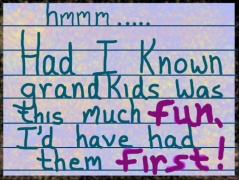 hmmm.....
Had I Known
grandkids was
this much fun,
I'd have had
them first!